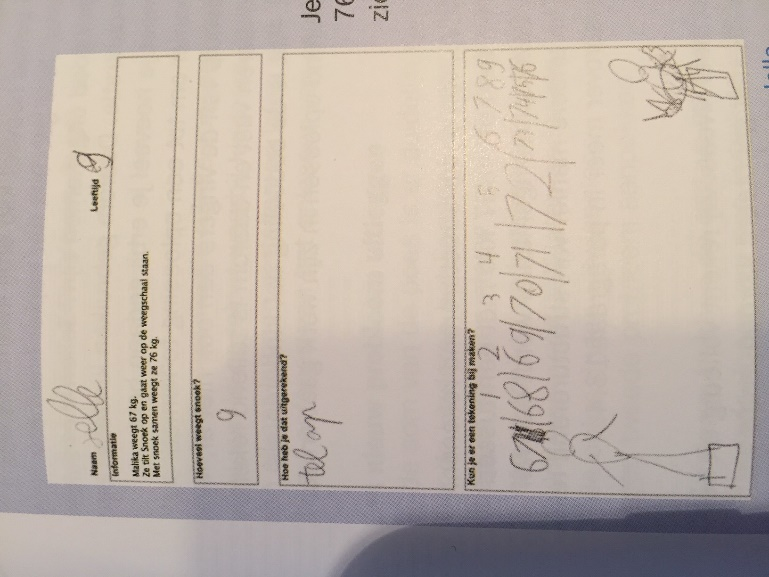 Je
76
zie
Naam jelle Leeftijd 9
Informatie
Malika weegt 67 kg.
Ze tilt Snoek op en gaat weer op de weegschaal staan.
Met snoek samen weegt ze 76 kg.
Hoeveel weegt snoek?
9
Hoe heb je dat uitgerekend?
tel op
Kun je er een tekening bij maken?
1 2 3 4 5 6 7 8 9
67/68/69/70/71/72/73/74/75/76